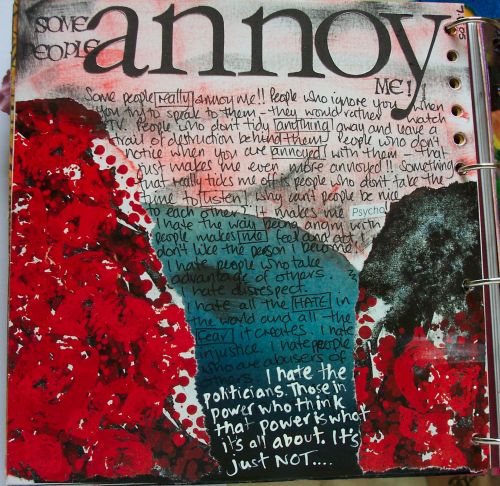 SOME
PEOPLE
annoy
ME!
Some people really annoy me!! People who ignore you when
you try to speak to them - they would rather watch
TV. People who don't tidy anything away and leave a
trail of destruction behind them. People who don't
notice when you are annoyed with them - that
just makes me even more annoyed!! Something
that really ticks me off is people who don't take the
time to listen. Why can't people be nice
to each other? It makes me Psycho
I hate the way being angry with
people makes me feel and act. I
don't like the person I become!
I hate people who take
advantage of others.
I hate disrespect.
I hate all the HATE in
the world and all the
fear it creates. I hate
injustice. I hate people
who are abusers of
others. I hate the
politicians. Those in
power who think
that power is what
it's all about. It's
just NOT....